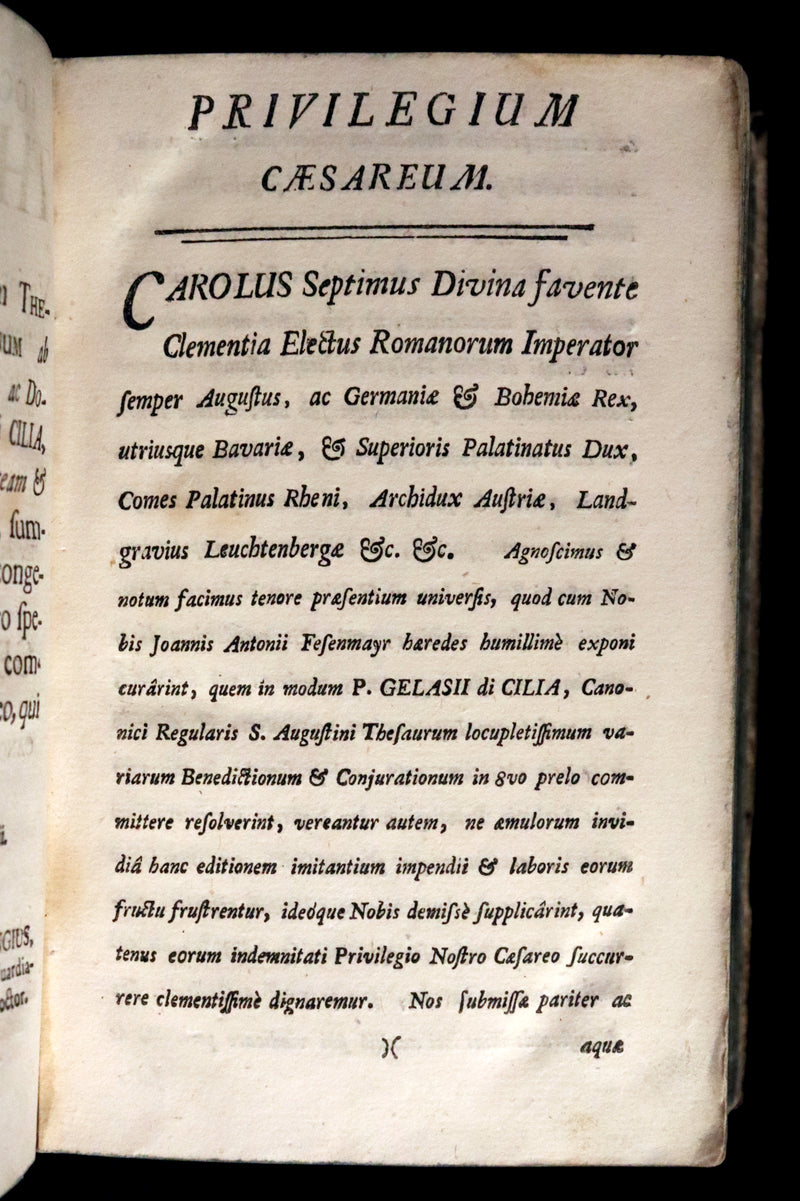 n THE-
UM ab
ac Do.
CILIA,
eam &
ſum-
onge-
o ſpe-
com-
co, qui
GIUS,
uardia-
octor.
PRIVILEGIUM
CÆSAREUM.
CAROLUS Septimus Divina favente
Clementia Electus Romanorum Imperator
ſemper Auguſtus, ac Germaniæ & Bohemiæ Rex,
utriusque Bavariæ, & Superioris Palatinatus Dux,
Comes Palatinus Rheni, Archidux Auſtriæ, Land-
gravius Leuchtenbergæ &c. &c. Agnoſcimus &
notum facimus tenore præſentium univerſis, quod cum No-
bis Joannis Antonii Feſenmayr hæredes humillimè exponi
curârint, quem in modum P. GELASII di CILIA, Cano-
nici Regularis S. Auguſtini Theſaurum locupletiſſimum va-
riarum Benedictionum & Conjurationum in 8vo prelo com-
mittere reſolverint, vereantur autem, ne æmulorum invi-
diâ hanc editionem imitantium impendii & laboris eorum
fructu fruſtrentur, ideóque Nobis demiſsè ſupplicârint, qua-
tenus eorum indemnitati Privilegio Noſtro Cæſareo ſuccur-
rere clementiſſimè dignaremur. Nos ſubmiſſæ pariter ac
)( æquæ